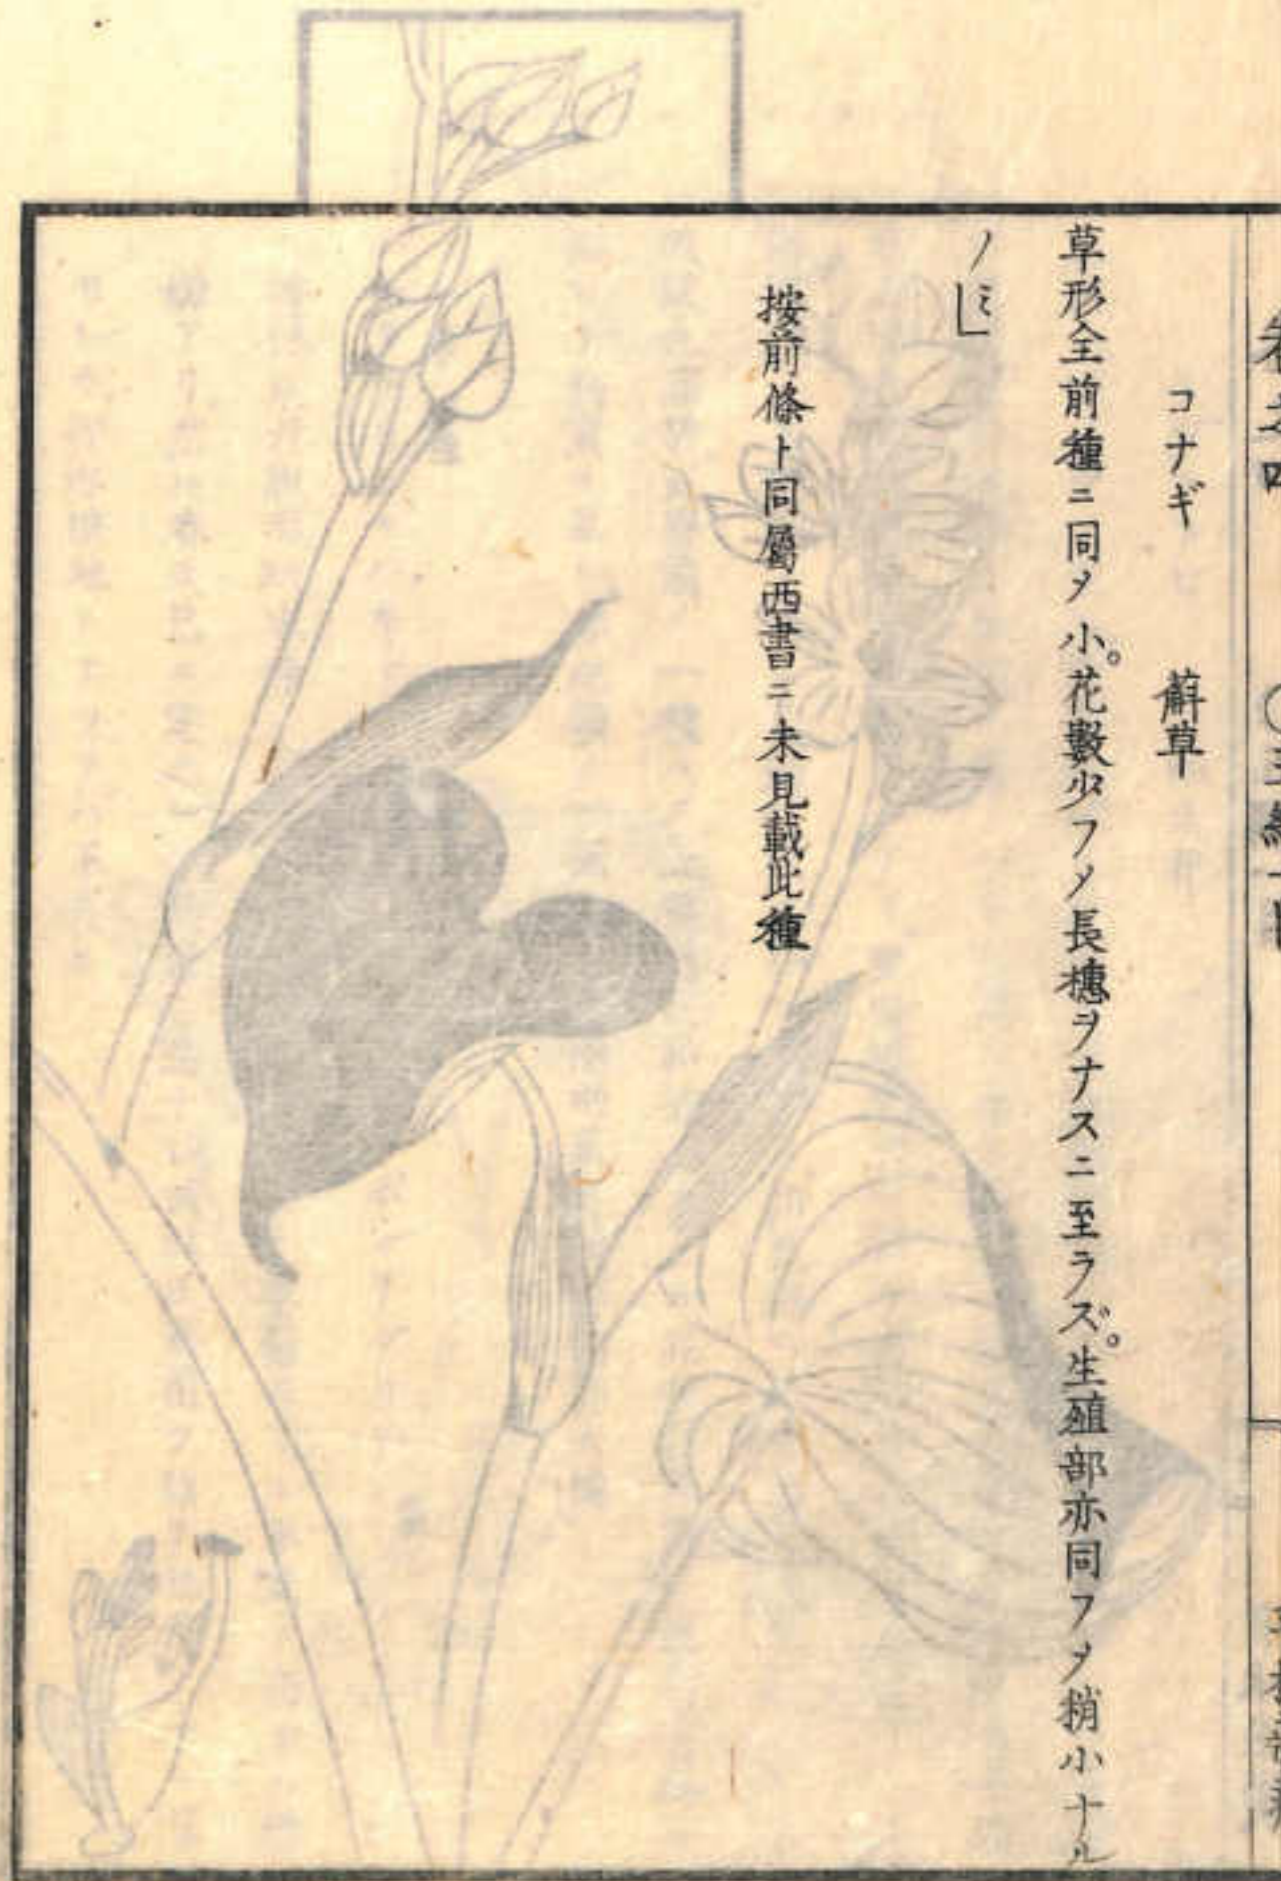 コナギ 蔛草
草形全前種ニ同〆小。花數少フ〆長穗ヲナスニ至ラズ。生殖部亦同フ〆稍小ナル
ノミ
按前條ト同屬西書ニ未見載此種